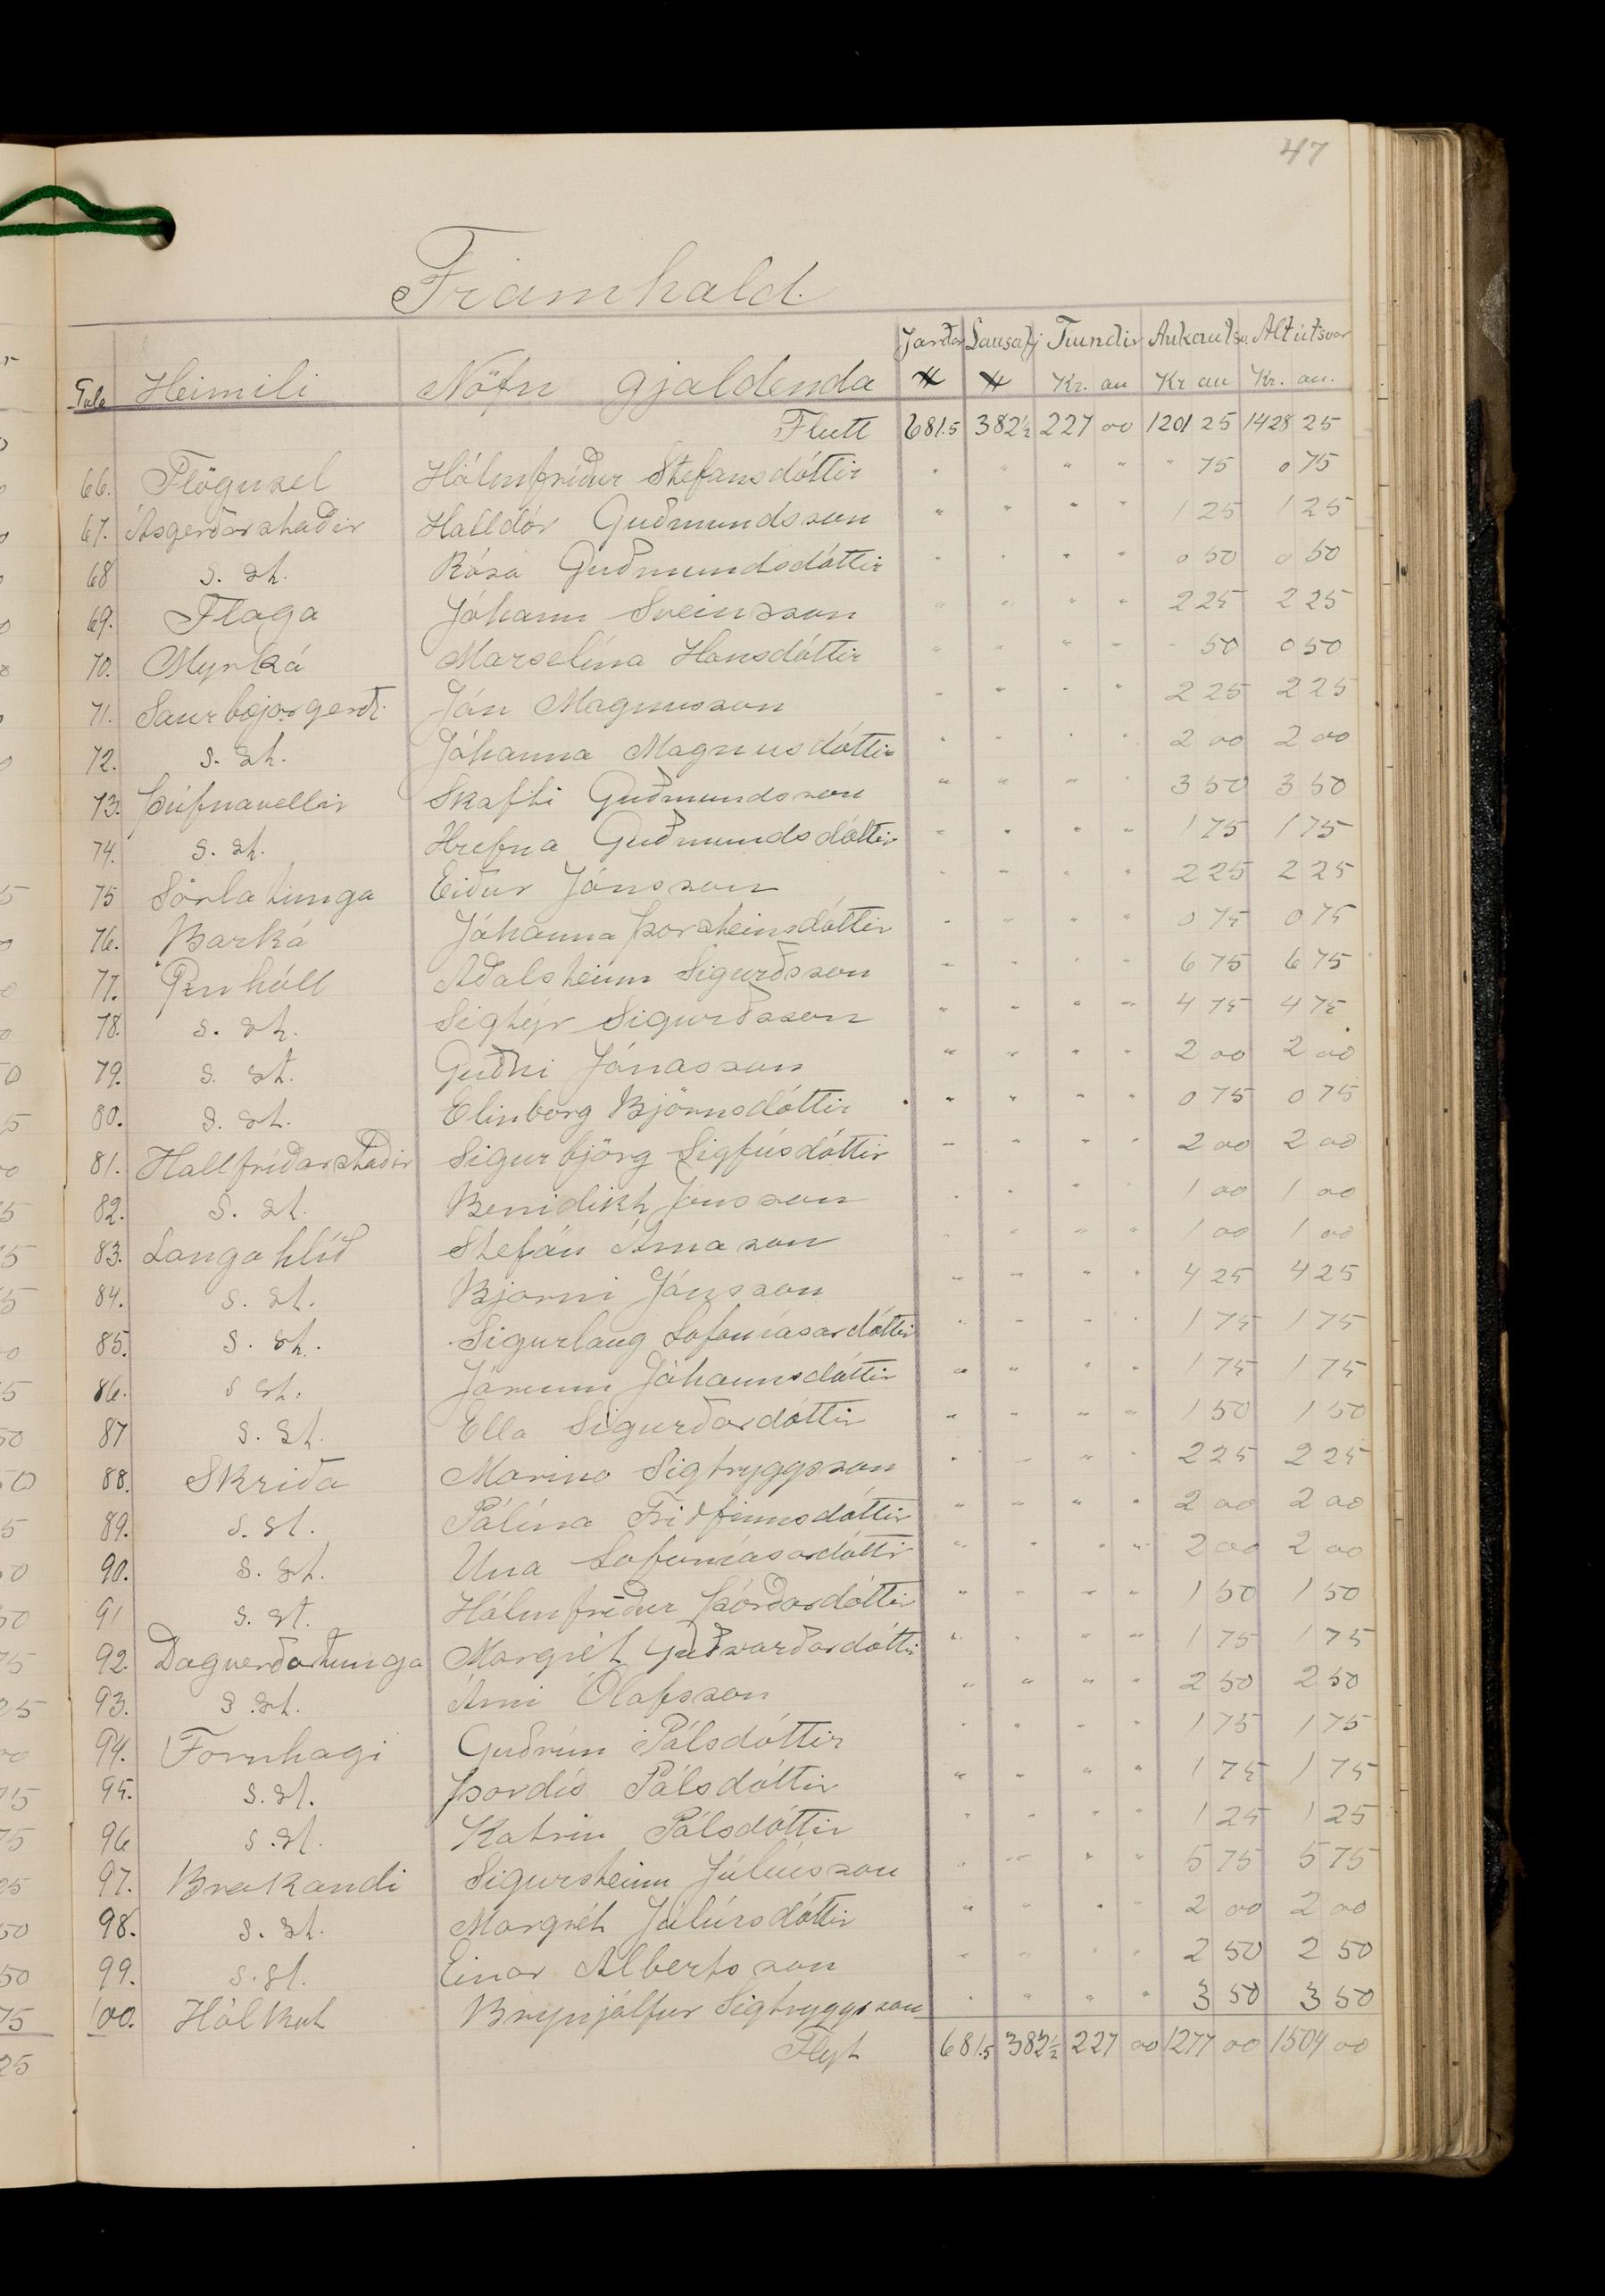 47
Framhald.
Tala Heimili Nöfn gjaldenda Jarðar Lausafj Tíundir Aukaútsv. Alt útsvar
Kr. au Kr au Kr. au.
Flutt 681.5 382½ 227 00 1201 25 1428 25
66. Flögusel Hólmfríður Stefansdóttir " " " " " 75 0 75
67. Ásgerðarstaðir Halldór Guðmundsson " " " " 1 25 1 25
68 s. st. Rósa Guðmundsdóttir " " " " 0 50 0 50
69. Flaga Jóhann Sveinsson " " " " 2 25 2 25
70. Myrká Marselína Hansdóttir " " " " " 50 0 50
71. Saurbæjargerði Jón Magnusson " " " " 2 25 2 25
72. s. st. Jóhanna Magnusdóttir " " " " 2 00 2 00
73. Þúfnavellir Skafti Guðmundsson " " " " 3 50 3 50
74. s. st. Hrefna Guðmundsdóttir " " " " 1 75 1 75
75 Sörlatunga Eiður Jónsson " " " " 2 25 2 25
76. Barká Jóhanna Þorsteinsdóttir " " " " 0 75 0 75
77. Öxnhóll Aðalsteinn Sigurðsson " " " " 6 75 6 75
78. s. st. Sigtýr Sigurðsson " " " " 4 75 4 75
79. s. st. Guðni Jónasson " " " " 2 00 2 00
80. s. st. Elinborg Björnsdóttir " " " " 0 75 0 75
81. Hallfríðarstaðir Sigurbjörg Sigfúsdóttir " " " " 2 00 2 00
82. s. st. Benidikt Jónsson " " " " 1 00 1 00
83. Langahlíð Stefán Árnason " " " " 1 00 1 00
84. s. st. Bjarni Jónsson " " " " 4 25 4 25
85. s. st. Sigurlaug Sofoníasardóttir " " " " 1 75 1 75
86. s st. Jórunn Jóhannsdóttir " " " " 1 75 1 75
87 s. st. Ella Sigurðardóttir " " " " 1 50 1 50
88. Skriða Marino Sigtryggsson " " " " 2 25 2 25
89. s. st. Pálína Friðfinnsdóttir " " " " 2 00 2 00
90. s. st. Una Sofoníasardóttir " " " " 2 00 2 00
91 s. st. Hólmfríður Þórðardóttir " " " " 1 50 1 50
92. Dagverðartunga Margrét Guðvarðardóttir " " " " 1 75 1 75
93. s. st. Árni Ólafsson " " " " 2 50 2 50
94. Fornhagi Guðrún Pálsdóttir " " " " 1 75 1 75
95. s. st. Þordís Pálsdóttir " " " " 1 75 1 75
96 s. st. Katrín Pálsdóttir " " " " 1 25 1 25
97. Brakandi Sigursteinn Júlíusson " " " " 5 75 5 75
98. s. st. Margrét Júlíusdóttir " " " " 2 00 2 00
99. s. st. Einar Albertsson " " " " 2 50 2 50
100. Hólkot Brynjólfur Sigtryggsson " " " " 3 50 3 50
Flyt 681.5 382½ 227 00 1277 00 1504 00